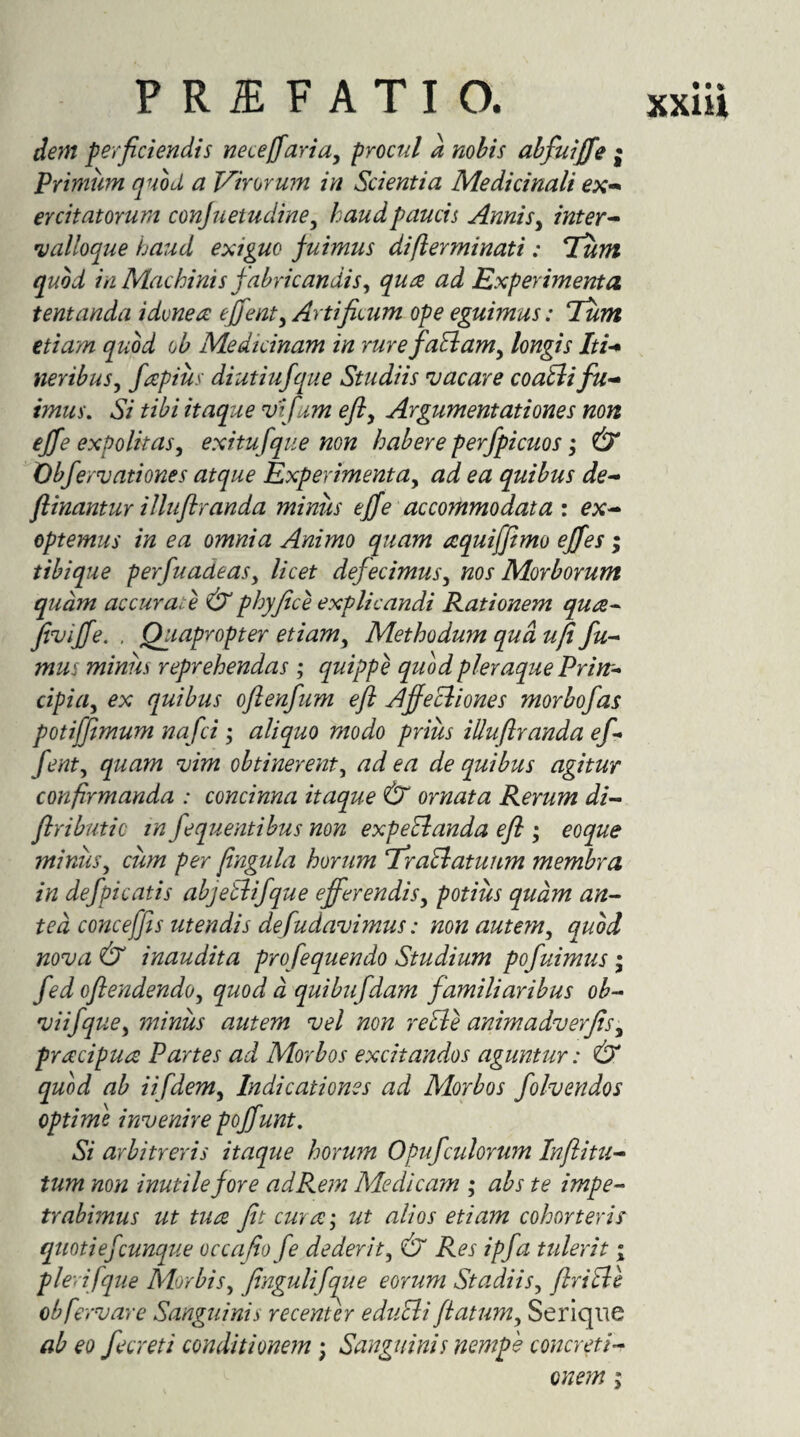 PRÆFATIO. xxiii
dem perficiendis neceſſaria, procul à nobis abfuiſſe ;
Primùm quòd a Virorum in Scientia Medicinali ex-
ercitatorum conſuetudine, haud paucis Annis, inter-
valloque haud exiguo fuimus diſterminati : Tùm
quòd in Machinis fabricandis, quæ ad Experimenta
tentanda idoneæ eſſent, Artificum ope eguimus : Tùm
etiam quòd ob Medicinam in rure factam, longis Iti-
neribus, ſæpiùs diutiuſque Studiis vacare coacti fu-
imus. Si tibi itaque viſum eſt, Argumentationes non
eſſe expolitas, exituſque non habere perſpicuos ; &
Obſervationes atque Experimenta, ad ea quibus de-
ſtinantur illuſtranda minùs eſſe accommodata : ex-
optemus in ea omnia Animo quam æquiſſimo eſſes ;
tibique perſuadeas, licet defecimus, nos Morborum
quàm accuratè & phyſicè explicandi Rationem quæ-
ſiviſſe. . Quapropter etiam, Methodum quâ uſi ſu-
mus minùs reprehendas ; quippè quòd pleraque Prin-
cipia, ex quibus oſtenſum eſt Affectiones morboſas
potiſſimum naſci ; aliquo modo priùs illuſtranda eſ-
ſent, quam vim obtinerent, ad ea de quibus agitur
confirmanda : concinna itaque & ornata Rerum di-
ſtributio in ſequentibus non expectanda eſt ; eoque
minùs, cùm per ſingula horum Tractatuum membra
in deſpicatis abjectiſque efferendis, potiùs quàm an-
teà conceſſis utendis deſudavimus : non autem, quòd
nova & inaudita proſequendo Studium poſuimus ;
ſed oſtendendo, quod à quibuſdam familiaribus ob-
viiſque, minùs autem vel non rectè animadverſis,
præcipuæ Partes ad Morbos excitandos aguntur : &
quòd ab iiſdem, Indicationes ad Morbos ſolvendos
optimè invenire poſſunt.
Si arbitreris itaque horum Opuſculorum Inſtitu-
tum non inutile fore ad Rem Medicam ; abs te impe-
trabimus ut tuæ ſit curæ ; ut alios etiam cohorteris
quotieſcunque occaſio ſe dederit, & Res ipſa tulerit ;
pleriſque Morbis, ſinguliſque eorum Stadiis, ſtrictè
obſervare Sanguinis recentèr educti ſtatum, Serique
ab eo ſecreti conditionem ; Sanguinis nempè concreti-
onem ;